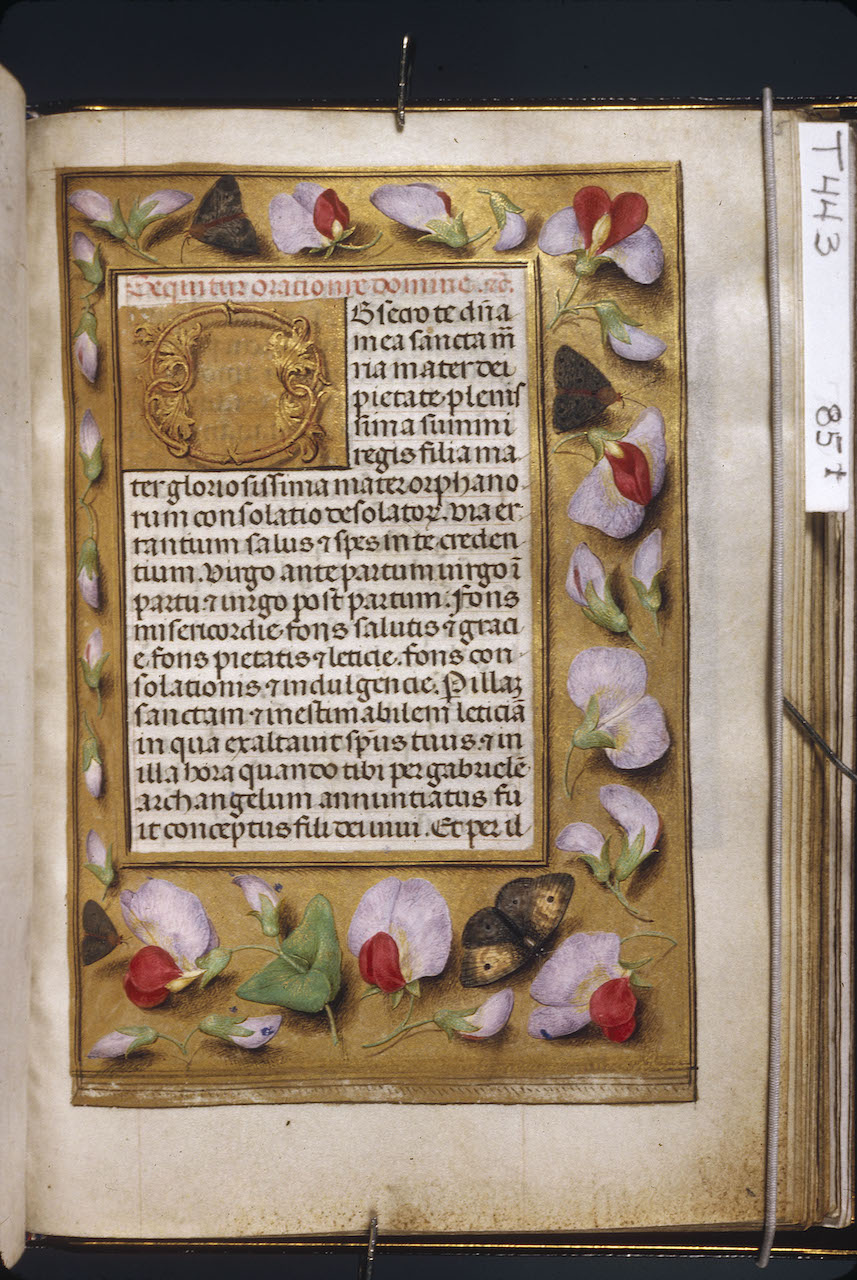 Sequitur oratio nr̄e domine. etc̄.
Obsecro te dn̄a
mea sancta m̄
ria mater dei
pietate plenis
sima summi
regis filia ma
ter gloriosissima mater orphano
rum consolatio desolatoꝝ. via er
rantium salus ⁊ spes in te creden
tium. Virgo ante partum virgo ī
partu ⁊ virgo post partum. Fons
misericordie fons salutis ⁊ graci
e. fons pietatis ⁊ leticie. fons con
solationis ⁊ indulgencie. P illaꝫ
sanctam ⁊ inestimabilem leticiā
in qua exaltauit sp̄us tuus. ⁊ in
illa hora quando tibi per gabrielē
archangelum annunciatus fu
it conceptus fili dei uiui. Et per il
T443 85t